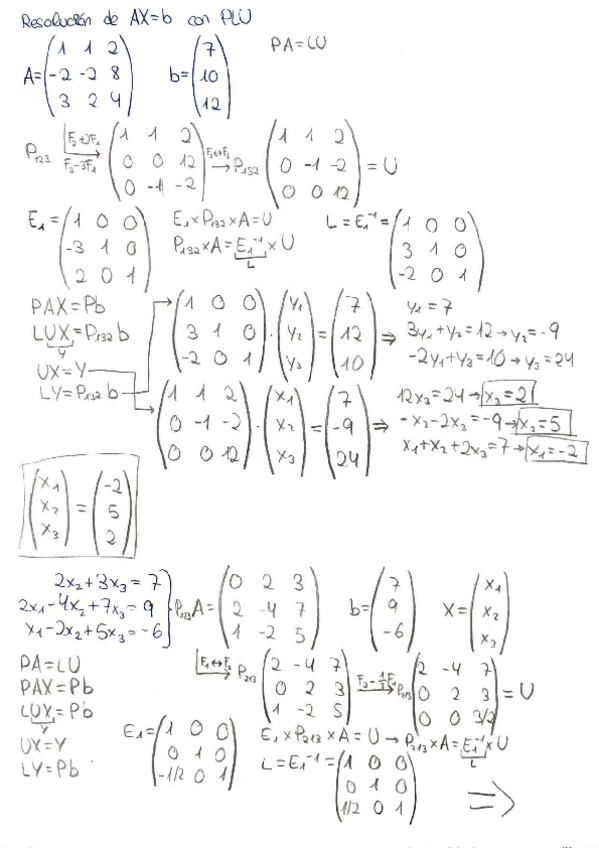 Resolución de AX=b con PLU
A=(1 1 2
-2 -2 8
3 2 4)
b=(7
10
12)
PA=LU
P₁₂₃ F₂+2F₁ F₃-3F₁ → (1 1 2
0 0 12
0 -1 -2)
F₂↔F₃ → P₁₃₂ (1 1 2
0 -1 -2
0 0 12) = U
E₁=(1 0 0
-3 1 0
2 0 1)
E₁×P₁₃₂×A=U
P₁₃₂×A=E₁⁻¹×U
L
L=E₁⁻¹=(1 0 0
3 1 0
-2 0 1)
PAX=Pb
LUX=P₁₃₂b
Y
UX=Y
LY=P₁₃₂b
(1 0 0
3 1 0
-2 0 1) · (y₁
y₂
y₃) = (7
12
10) ⇒
y₁=7
3y₁+y₂=12→y₂=-9
-2y₁+y₃=10→y₃=24
(1 1 2
0 -1 -2
0 0 12) · (x₁
x₂
x₃) = (7
-9
24) ⇒
12x₃=24→x₃=2
-x₂-2x₃=-9→x₂=5
x₁+x₂+2x₃=7→x₁=-2
(x₁
x₂
x₃) = (-2
5
2)
2x₂+3x₃=7
2x₁-4x₂+7x₃=9
x₁-2x₂+5x₃=-6
P₁₂₃A=(0 2 3
2 -4 7
1 -2 5)
b=(7
9
-6)
X=(x₁
x₂
x₃)
PA=LU
PAX=Pb
LUX=Pb
Y
UX=Y
LY=Pb
F₁↔F₂ → P₂₁₃ (2 -4 7
0 2 3
1 -2 5)
F₃-½F₁ → P₂₁₃ (2 -4 7
0 2 3
0 0 3/2) = U
E₁=(1 0 0
0 1 0
-1/2 0 1)
E₁×P₂₁₃×A=U→P₂₁₃×A=E₁⁻¹×U
L
L=E₁⁻¹=(1 0 0
0 1 0
1/2 0 1)
⇒